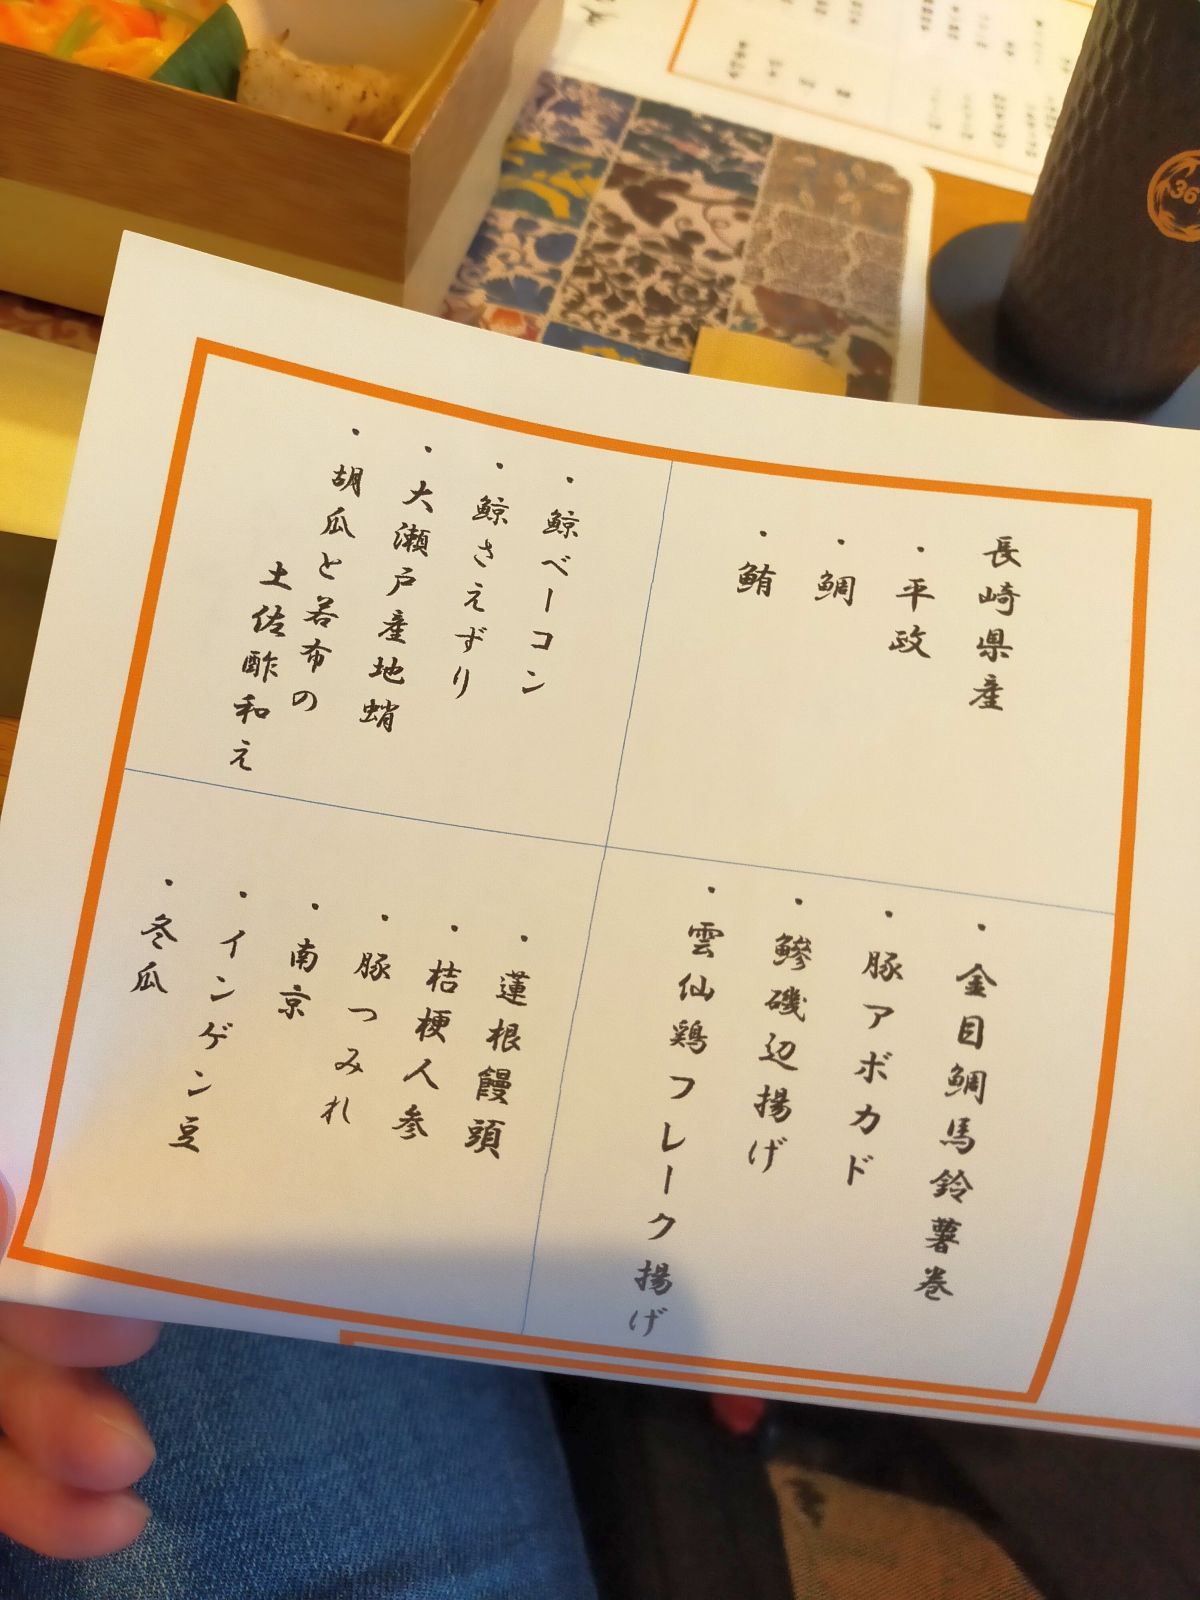 長崎県産
・平政
・鯛
・鮪
・鯨ベーコン
・鯨さえずり
・大瀬戸産地蛸
・胡瓜と若布の
土佐酢和え
・金目鯛馬鈴薯巻
・豚アボカド
・鯵磯辺揚げ
・雲仙鶏フレーク揚げ
・蓮根饅頭
・桔梗人参
・豚つみれ
・南京
・インゲン豆
・冬瓜
36